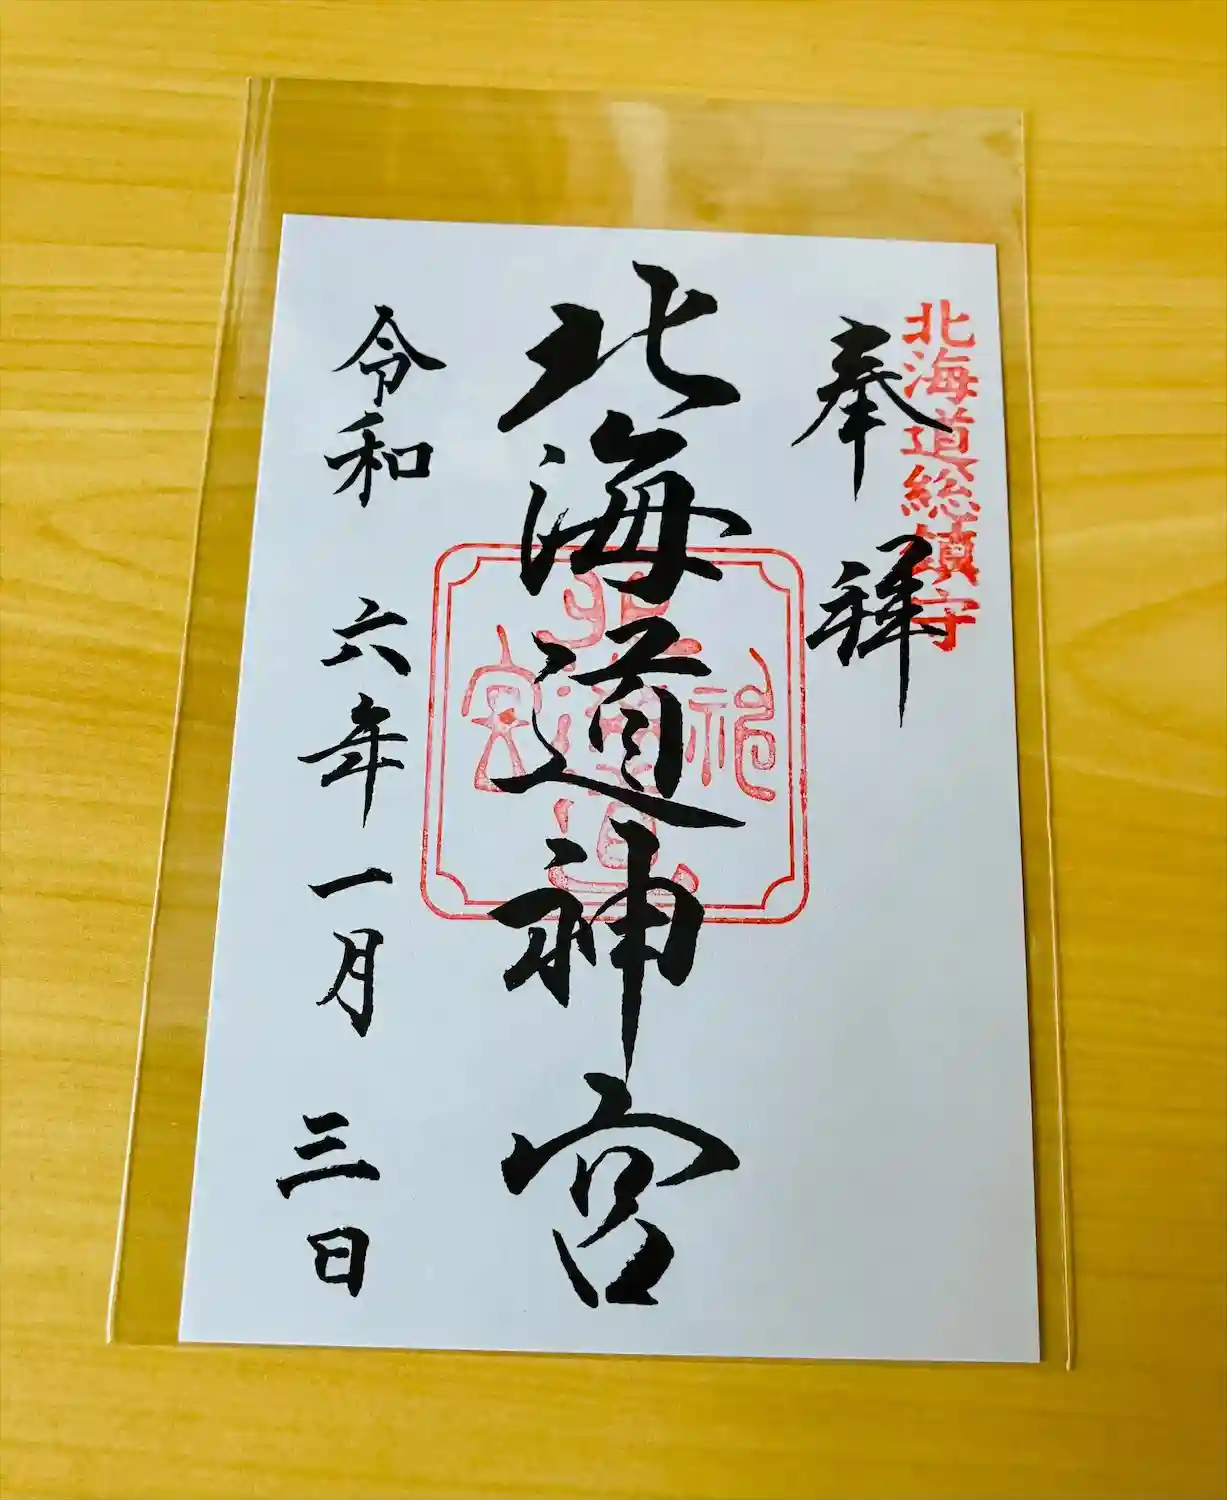 北海道総鎮守
奉拝
北海道神宮
令和六年一月三日